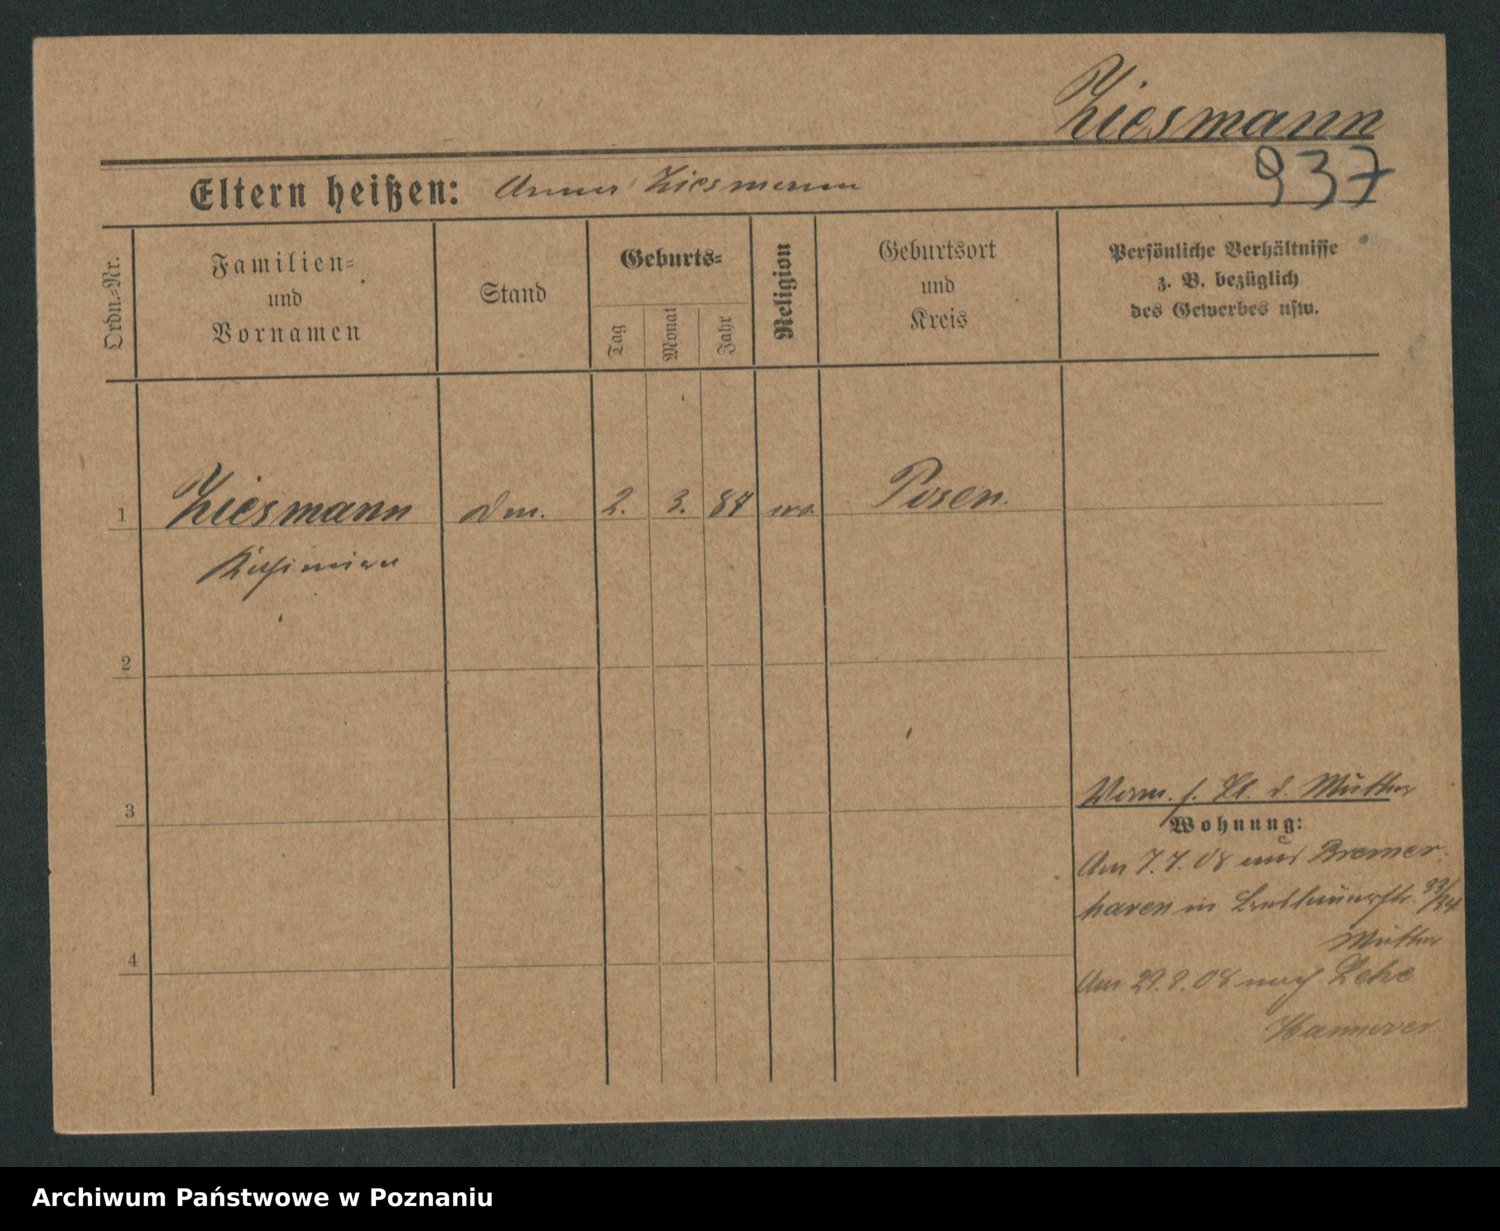 Ziesmann
937
Eltern heißen: Anna Ziesmann
Ordn.-Nr.
Familien-
und
Vornamen
Stand
Geburts-
Tag
Monat
Jahr
Religion
Geburtsort
und
Kreis
Persönliche Verhältnisse
z. B. bezüglich
des Gewerbes usw.
1
Ziesmann
2. 3. 84
Posen.
Kasimira
2
3
Mutter
Wohnung:
Am 7.7.08 aus Bremer-
haven in 33/34
Mutter
4
Am 29.9.08 nach Lehe
Hannover
Archiwum Państwowe w Poznaniu